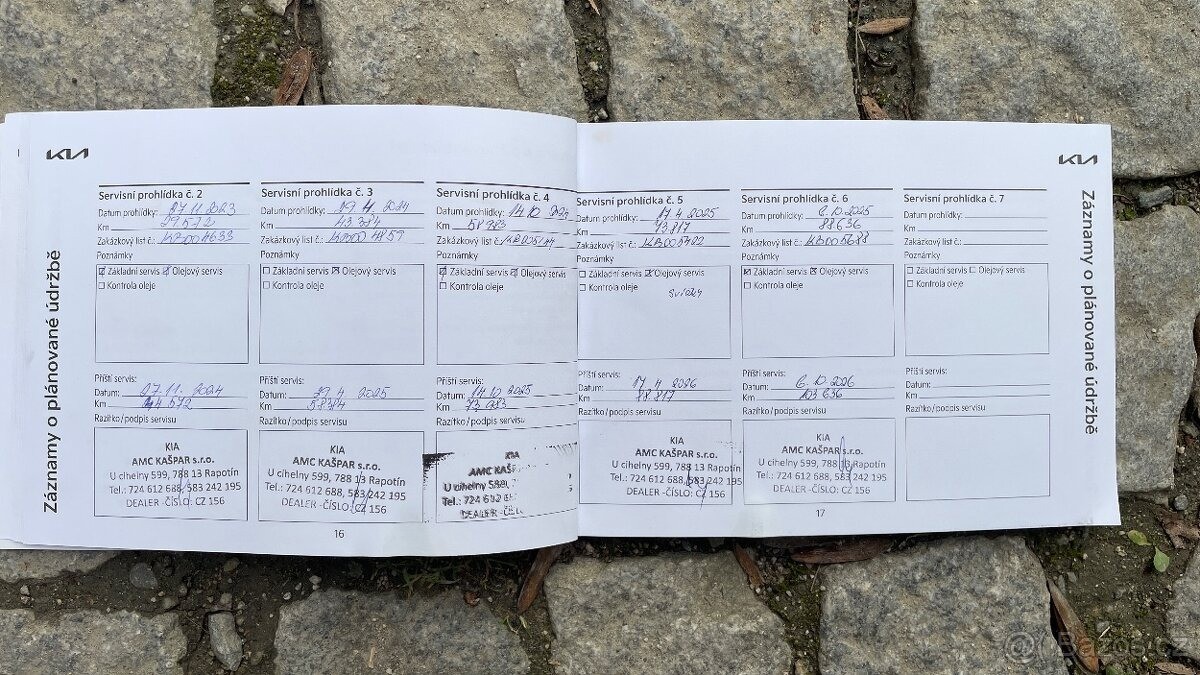 KIA
Záznamy o plánované údržbě
Servisní prohlídka č. 2
Datum prohlídky: 07.11.2023
Km 29572
Zakázkový list č.: KB004633
Poznámky
☑ Základní servis ☑ Olejový servis
☐ Kontrola oleje
Příští servis:
Datum: 07.11.2024
Km 44572
Razítko/podpis servisu
KIA
AMC KAŠPAR s.r.o.
U cihelny 599, 788 13 Rapotín
Tel.: 724 612 688, 583 242 195
DEALER -ČÍSLO: CZ 156
Servisní prohlídka č. 3
Datum prohlídky: 29.4.2024
Km 43374
Zakázkový list č.: KB004859
Poznámky
☐ Základní servis ☒ Olejový servis
☐ Kontrola oleje
Příští servis:
Datum: 29.4.2025
Km 58374
Razítko/podpis servisu
KIA
AMC KAŠPAR s.r.o.
U cihelny 599, 788 13 Rapotín
Tel.: 724 612 688, 583 242 195
DEALER -ČÍSLO: CZ 156
16
Servisní prohlídka č. 4
Datum prohlídky: 14.10.2024
Km 58983
Zakázkový list č.:
Poznámky
☑ Základní servis ☑ Olejový servis
☐ Kontrola oleje
Příští servis:
Datum: 14.10.2025
Km 73983
Razítko/podpis servisu
KIA
AMC KAŠP
U cihelny 599,
Tel.: 724 612
DEALER -ČÍSL
Servisní prohlídka č. 5
Datum prohlídky: 17.4.2025
Km 73.817
Zakázkový list č.: KB005422
Poznámky
☐ Základní servis ☒ Olejový servis
☐ Kontrola oleje
Příští servis:
Datum: 17.4.2026
Km 88.817
Razítko/podpis servisu
KIA
AMC KAŠPAR s.r.o.
U cihelny 599, 788 13 Rapotín
Tel.: 724 612 688, 583 242 195
DEALER -ČÍSLO: CZ 156
Servisní prohlídka č. 6
Datum prohlídky: 6.10.2025
Km 88.636
Zakázkový list č.: KB005688
Poznámky
☑ Základní servis ☒ Olejový servis
☐ Kontrola oleje
Příští servis:
Datum: 6.10.2026
Km 103636
Razítko/podpis servisu
KIA
AMC KAŠPAR s.r.o.
U cihelny 599, 788 13 Rapotín
Tel.: 724 612 688, 583 242 195
DEALER -ČÍSLO: CZ 156
17
Servisní prohlídka č. 7
Datum prohlídky:
Km
Zakázkový list č.:
Poznámky
☐ Základní servis ☐ Olejový servis
☐ Kontrola oleje
Příští servis:
Datum:
Km
Razítko/podpis servisu
KIA
Záznamy o plánované údržbě
Bazos.cz